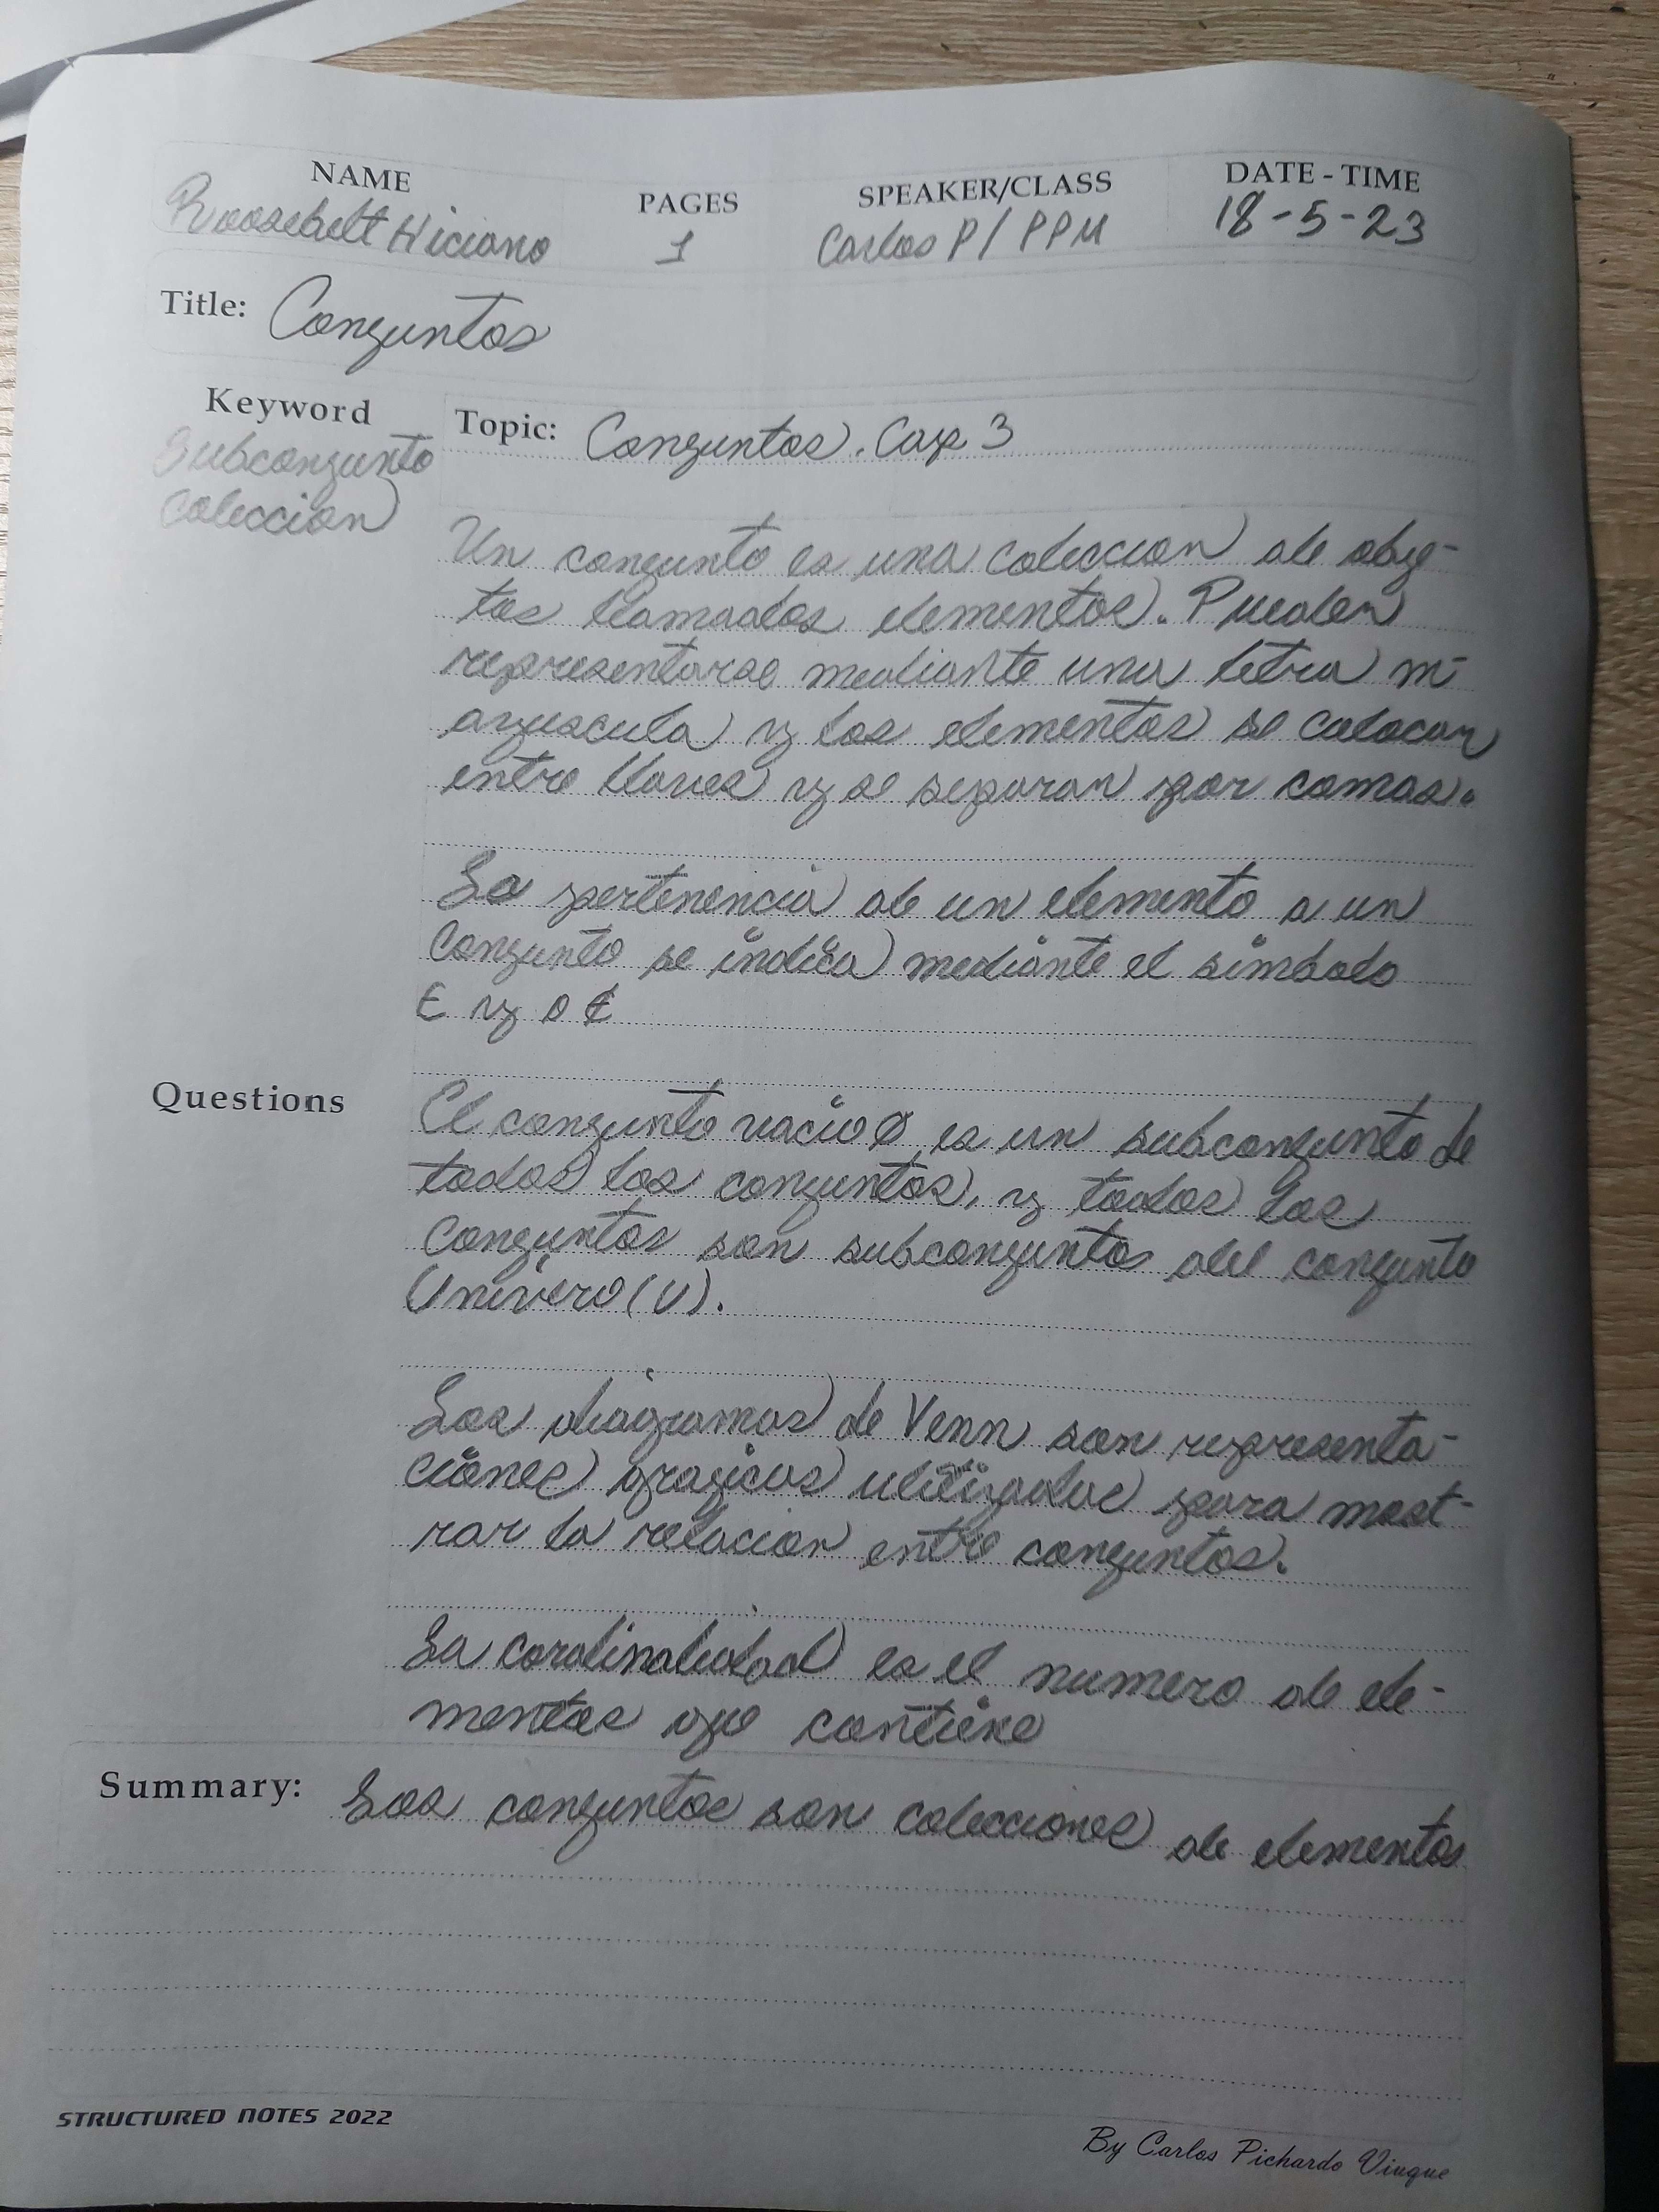 NAME
Roosebelt Hiciano
PAGES
1
SPEAKER/CLASS
Carlos P/ PPM
DATE - TIME
18-5-23
Title: Conjuntos
Keyword
Subconjunto
Coleccion
Topic: Conjuntos. Cap 3
Un conjunto es una coleccion de obje-
tos llamados elementos. Pueden
representarse mediante una letra m-
ayuscula y los elementos se colocan
entre llaves y se separan por comas.
La pertenencia de un elemento a un
Conjunto se indica mediante el simbolo
∈ y o ∉
Questions
El conjunto vacio Ø es un subconjunto de
todos los conjuntos, y todos los
Conjuntos son subconjuntos del conjunto
Univero (U).
Los diagramas de Venn son representa-
ciones graficas utilizadas para most-
rar la relacion entre conjuntos.
La cardinalidad es el numero de ele-
mentos que contiene
Summary: Los conjuntos son colecciones de elementos
STRUCTURED NOTES 2022
By Carlos Pichardo Viuque